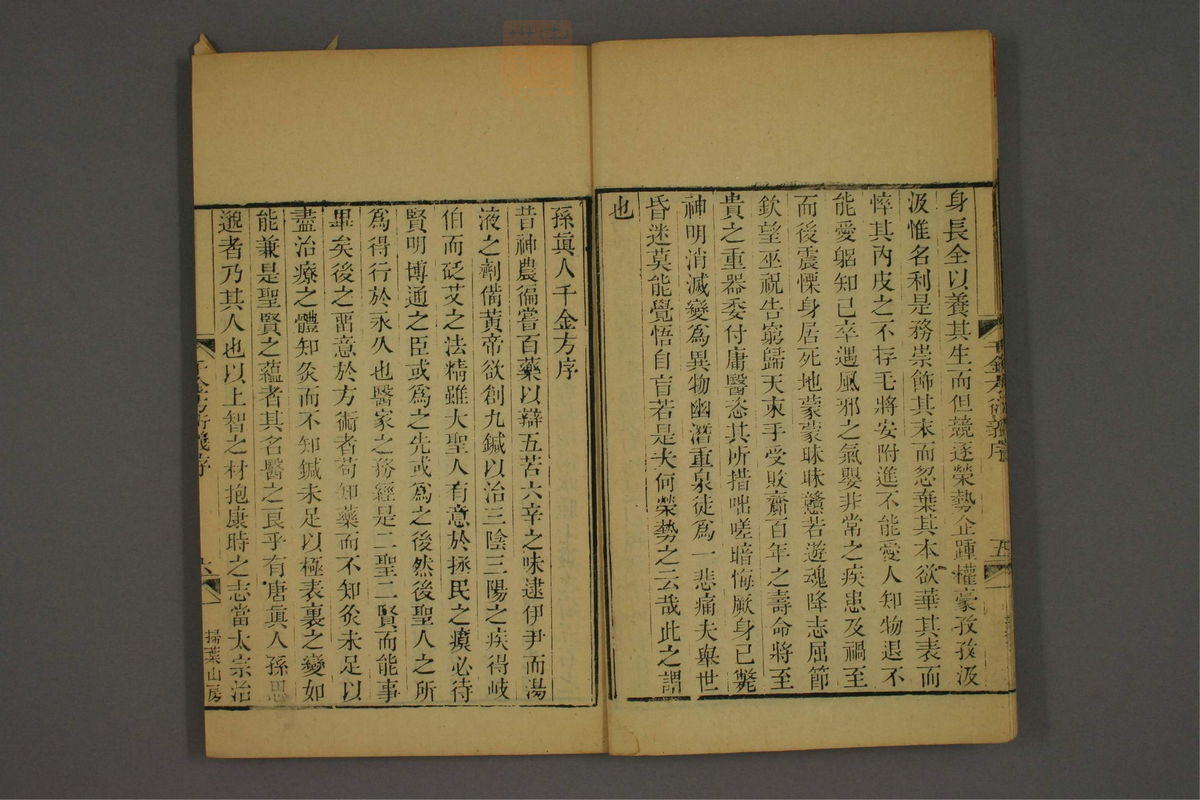 身長全以養其生而但競逐榮勢企踵權豪孜孜汲
汲惟名利是務崇飾其末而忽棄其本欲華其表而
悴其內皮之不存毛將安附進不能愛人知物退不
能愛躬知己卒遇風邪之氣嬰非常之疾患及禍至
而後震慄身居死地蒙蒙昧昧戇若遊魂降志屈節
欽望巫祝告窮歸天束手受敗齎百年之壽命將至
貴之重器委付庸醫恣其所措咄嗟暗悔厥身已斃
神明消滅變為異物幽潛重泉徒為一悲痛夫舉世
昏迷莫能覺悟自盲若是夫何榮勢之云哉此之謂
也
千金方衍義序
五
孫眞人千金方序
昔神農徧嘗百藥以辯五苦六辛之味逮伊尹而湯
液之劑備黃帝欲創九鍼以治三陰三陽之疾得岐
伯而砭艾之法精雖大聖人有意於拯民之瘼必待
賢明博通之臣或爲之先或爲之後然後聖人之所
爲得行於永久也醫家之務經是二聖二賢而能事
畢矣後之留意於方術者苟知藥而不知灸未足以
盡治療之體知灸而不知鍼未足以極表裏之變如
能兼是聖賢之蘊者其名醫之良乎有唐眞人孫思
邈者乃其人也以上智之材抱康時之志當太宗治
千金方衍義序
六
掃葉山房